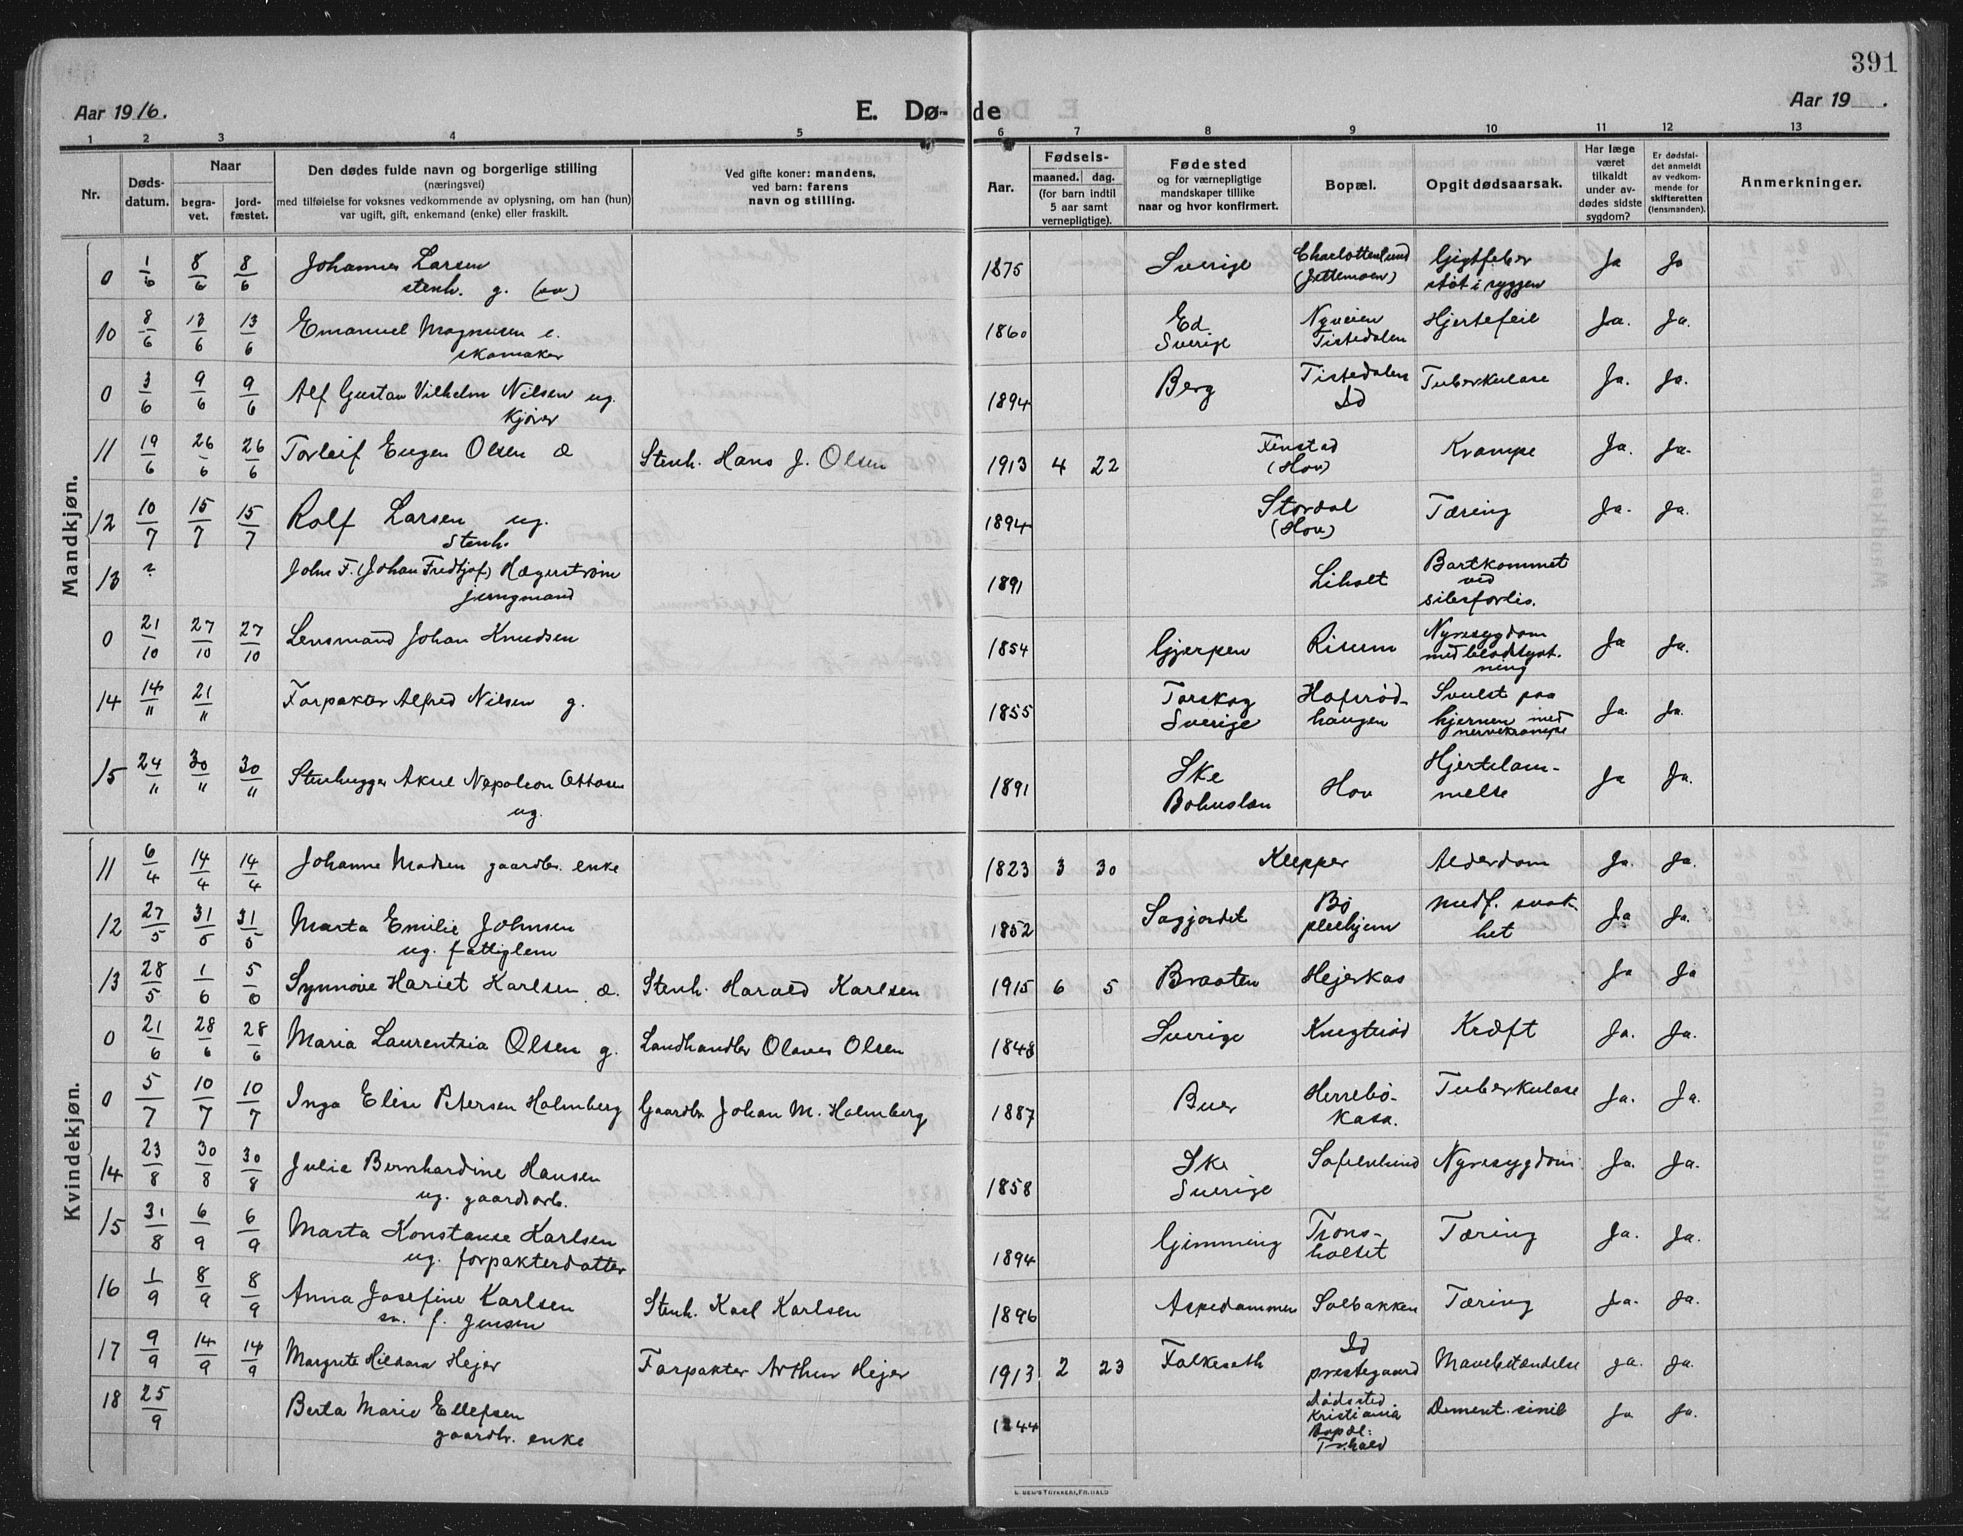 391
Aar 1916.
E. Dø-
de
Aar 19 .
1 2 3 4 5 6 7 8 9 10 11 12 13
Nr.
Døds-
datum.
Naar
begra-
vet.
jord-
fæstet.
Den dødes fulde navn og borgerlige stilling
(næringsvei)
med tilføielse for voksnes vedkommende av oplysning, om han (hun)
var ugift, gift, enkemand (enke) eller fraskilt.
Ved gifte koner: mandens,
ved barn: farens
navn og stilling.
Aar.
Fødsels-
maaned. dag.
(for barn indtil
5 aar samt
vernepligtige).
Fødested
og for værnepligtige
mandskaper tillike
naar og hvor konfirmert.
Bopæl.
Opgit dødsaarsak.
Har læge
været
tilkaldt
under av-
dødes sidste
sygdom?
Er dødsfal-
det anmeldt
av vedkom-
mende for
skifteretten
(lensmanden).
Anmerkninger.
Mandkjøn.
0 1/6 8/6 8/6 Johannes Larsen 1875 Sverige Charlottenlund Gigtfeber Ja Ja
stenh. g. (Jettemoen) støt i ryggen
10 8/6 13/6 13/6 Emanuel Magnusen e. 1860 Ed Nyveien Hjertefeil Ja. Ja.
skomaker Sverige Tistedalen
0 3/6 9/6 9/6 Alf Gustav Vilhelm Nilsen ug. 1894 Berg Tistedalen Tuberkulose Ja. Ja.
Kjører Id
11 19/6 26/6 26/6 Torleif Eugen Olsen æ Stenh. Hans J. Olsen 1913 4 22 Finstad Krampe Ja. Ja.
(Hov)
12 10/7 15/7 15/7 Rolf Larsen ug. 1894 Stordal Tæring Ja. Ja.
Stenh. (Hov)
13 ? John F. (Johan Fredtjof) Hægerstrøm 1891 Liholt Bortkommet
jungmand ved
silesforlis.
0 21/10 27/10 27/10 Lensmand Johan Knudsen 1854 Gjerpen Risum Nyresygdom Ja Ja.
med blodstyrt-
ning
14 14/" 21/" Forpakter Alfred Nilsen g. 1855 Torskog Hafsrød- Svulst paa Ja. Ja.
Sverige haugen hjernen med
nervekrampe
15 24/" 30/" 30/" Stenhugger Aksel Napoleon Ottosen 1891 Ske Hov Hjertelam- Ja Ja.
ug. Bohuslen melse
Kvindekjøn.
11 6/4 14/4 14/4 Johanne Madsen gaardbr. enke 1823 3 30 Klepper Alderdom Ja. Ja.
12 27/5 31/5 31/5 Marta Emilie Johnsen 1852 Sagjordet Bø medf. svak- Ja Ja.
ug. fattiglem pleiehjem het
13 28/5 1/6 5/6 Synnøve Hariet Karlsen æ. Stenh. Harald Karlsen 1915 6 5 Braaten Hejerkas Ja Ja
0 21/6 28/6 28/6 Maria Laurentzia Olsen g. Landhandler Olaves Olsen 1848 Sverige Knegtrød Kræft Ja. Ja.
0 5/7 10/7 10/7 Inga Elise Petersen Holmberg Gaardbr. Johan M. Holmberg 1887 Buer Herrebø- Tuberkulose Ja. Ja.
kasa.
14 23/8 30/8 30/8 Julie Bernhardine Hansen 1858 Ske Sofienlund Nyresygdom Ja. Ja.
ug. gaardsarb. Sverige
15 31/8 6/9 6/9 Marta Konstanse Karlsen 1894 Gimming Trons- Tæring Ja. Ja.
ug. forpakterdatter holtet
16 1/9 8/9 8/9 Anna Josefine Karlsen Stenh. Karl Karlsen 1896 Aspedammen Solbakken Tæring Ja. Ja.
f. Jensen
17 9/9 14/9 14/9 Margrete Hildara Hejer Forpakter Arthur Hejer 1913 2 23 Folkeseth Id Mavebetændelse ja. Ja.
prestegaard
18 25/9 Berta Marie Ellefsen 1844 Dødssted Dement. sinil Ja Ja.
gaardbr. enke Kristiania
Bopæl: